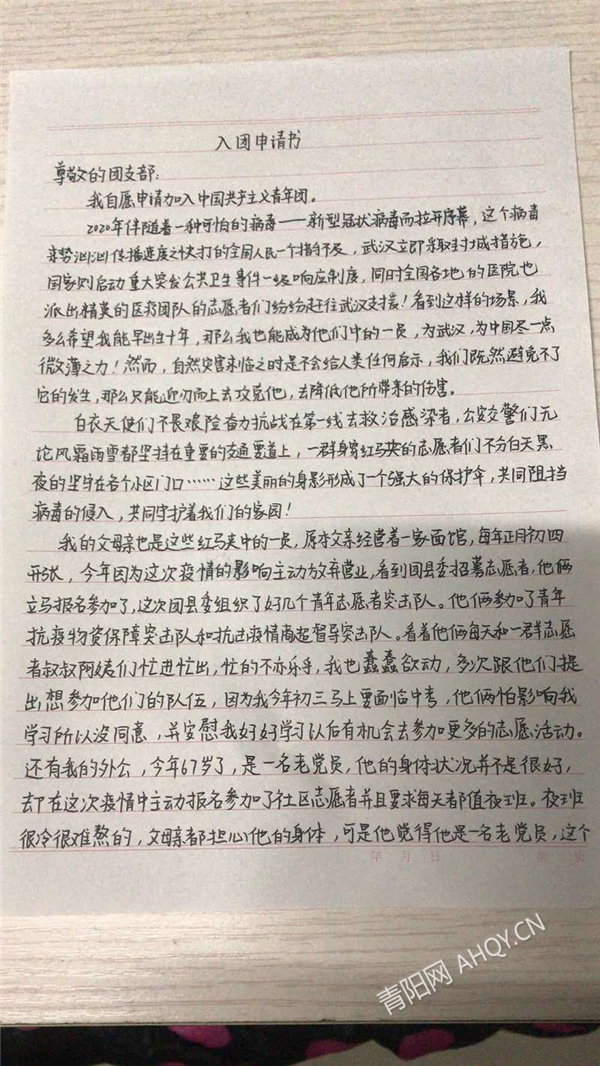 入团申请书
尊敬的团支部：
我自愿申请加入中国共产主义青年团。
2020年伴随着一种可怕的病毒——新型冠状病毒而拉开序幕，这个病毒
来势汹汹传播速度之快打的全国人民一个措手不及，武汉立即采取封城措施，
国家则启动重大突发公共卫生事件一级响应制度，同时全国各地的医院也
派出精英的医疗团队的志愿者们纷纷赶往武汉支援！看到这样的场景，我
多么希望我能早出生十年，那么我也能成为他们中的一员，为武汉，为中国尽一点
微薄之力！然而，自然灾害来临之时是不会给人类任何启示，我们既然避免不了
它的发生，那么只能迎刃而上去攻克他，去降低他所带来的伤害。
白衣天使们不畏艰险奋力抗战在第一线去救治感染者，公安交警们无
论风霜雨雪都坚持在重要的交通要道上，一群身穿红马夹的志愿者们不分白天黑
夜的坚守在各个小区门口……这些美丽的身影形成了一个强大的保护伞，共同阻挡
病毒的侵入，共同守护着我们的家园！
我的父母亲也是这些红马夹中的一员，原本父亲经营着一家面馆，每年正月初四
开张，今年因为这次疫情的影响主动放弃营业，看到团县委招募志愿者，他俩
立马报名参加了，这次团县委组织了好几个青年志愿者突击队。他俩参加了青年
抗疫物资保障突击队和抗击疫情商超督导突击队。看着他俩每天和一群志愿
者叔叔阿姨们忙进忙出，忙的不亦乐乎，我也蠢蠢欲动，多次跟他们提
出想参加他们的队伍，因为我今年初三马上要面临中考，他俩怕影响我
学习所以没同意，并安慰我好好学习以后有机会去参加更多的志愿活动。
还有我的外公，今年67岁了，是一名老党员，他的身体状况并不是很好，
却在这次疫情中主动报名参加了社区志愿者并且要求每天都值夜班。夜班
很冷很难熬的，父母亲都担心他的身体，可是他觉得他是一名老党员，这个
年 月 日 第 页
青阳网 AHQY.CN